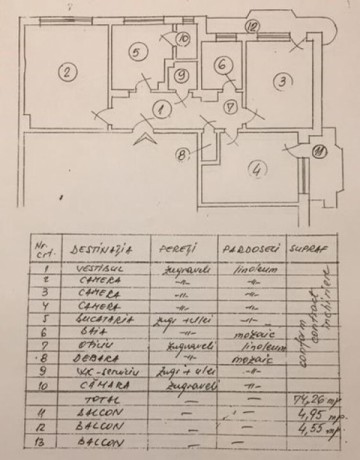 12
10
5
2
9
6
3
1
7
8
4
11
Nr. crt. DESTINAȚIA PEREȚI PARDOSELI SUPRAF
1 VESTIBUL zugraveli linoleum
2 CAMERA -"- -"-
3 CAMERA -"- -"-
4 CAMERA -"- -"-
5 BUCATARIA zugr + ulei -"-
6 BAIA -"- mozaic
7 OFICIU zugraveli linoleum
8 DEBARA -"- mozaic
9 WC-serviciu zugr + ulei -"-
10 CĂMARA zugraveli -"-
conform contract închiriere
TOTAL — — 74,26 mp.
11 BALCON — — 4,95 mp.
12 BALCON — — 4,55 mp.
13 BALCON — —